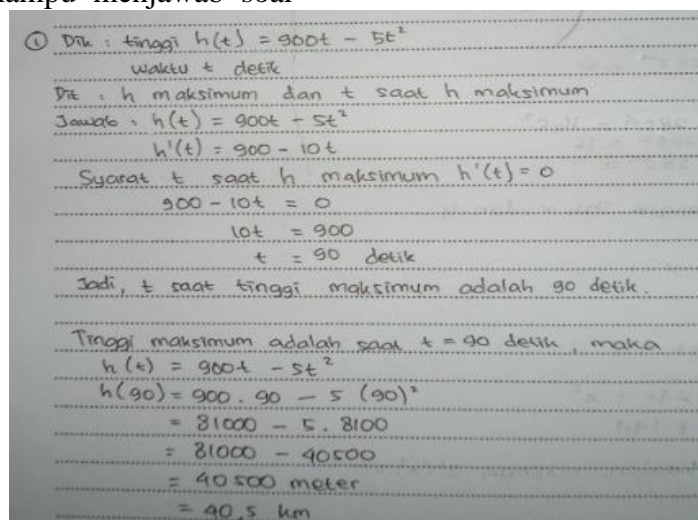 mampu menjawab soal
① Dik : tinggi h(t) = 900t - 5t²
waktu t detik
Dit : h maksimum dan t saat h maksimum
Jawab : h(t) = 900t - 5t²
h'(t) = 900 - 10t
Syarat t saat h maksimum h'(t) = 0
900 - 10t = 0
10t = 900
t = 90 detik
Jadi, t saat tinggi maksimum adalah 90 detik.
Tinggi maksimum adalah saat t = 90 detik, maka
h(t) = 900t - 5t²
h(90) = 900 . 90 - 5 (90)²
= 81000 - 5 . 8100
= 81000 - 40500
= 40500 meter
= 40,5 km